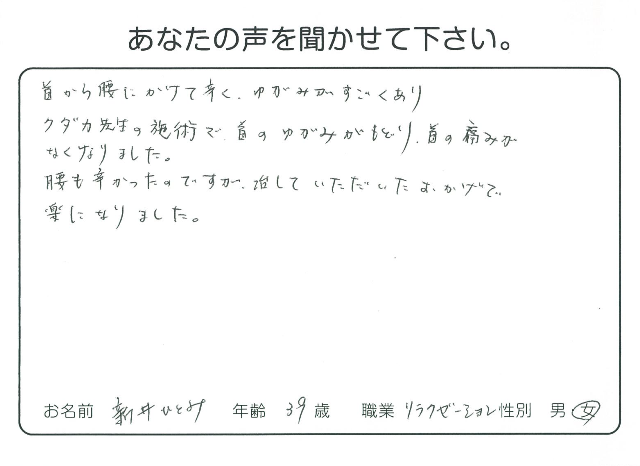 あなたの声を聞かせて下さい。
首から腰にかけて辛く、ゆがみがすごくあり
クダカ先生の施術で、首のゆがみがもどり、首の痛みが
なくなりました。
腰も辛かったのですが、治していただいたおかげで
楽になりました。
お名前 新井ひとみ 年齢 39歳 職業 リラクゼーション 性別 男 女